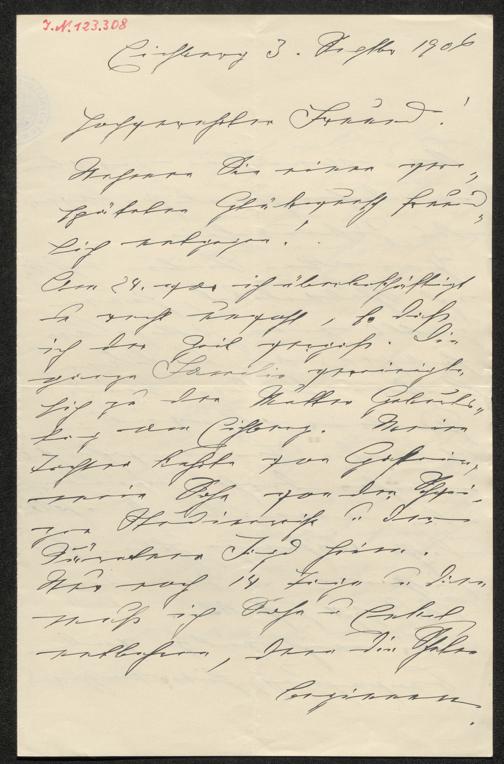 J.N. 123.308
Eichberg 3. Septbr 1906
Hochgeehrter Freund!
Nehmen Sie einen ver„
späteten Glückwunsch freund„
lich entgegen!
Am 24. war ich überbeschäftigt
u recht, so daß
ich der Zeit vergaß. Die
ganze Familie vereinigte
sich zu der Mutter Geburts„
tag am Eichberg. Meine
Tochter kehrte von Gastein,
mein Sohn von der
Studienreise u den
Jagd heim.
Nur noch 14 Tage u dann
muß ich Sohn u Enkel
entbehren, denn die Schulen
beginnen.